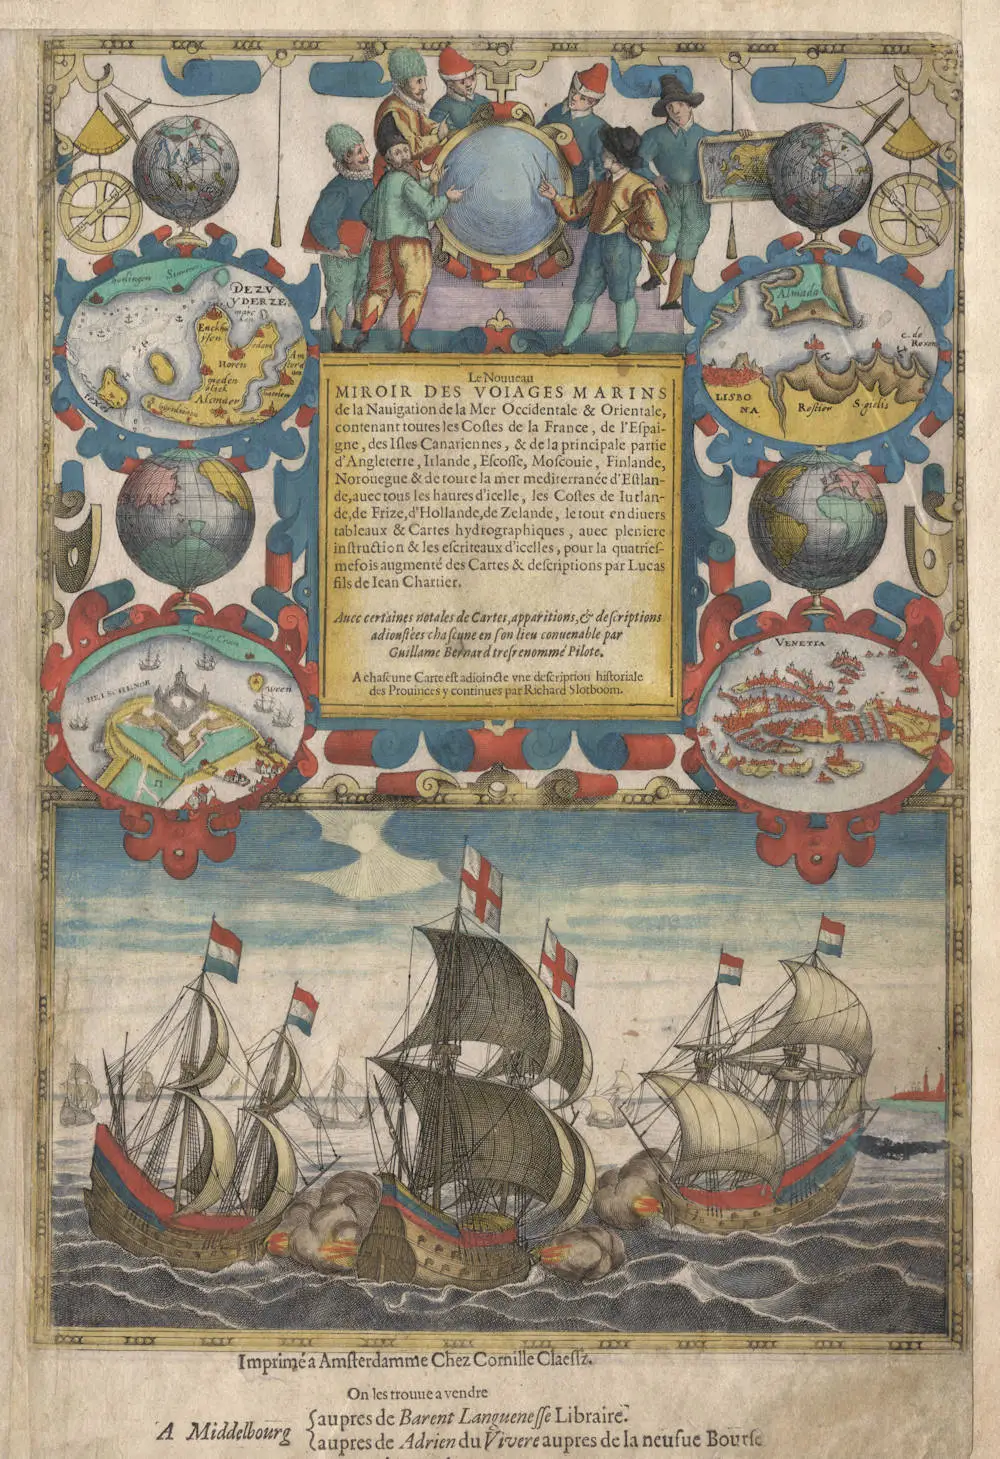 Le Nouueau
MIROIR DES VOIAGES MARINS
de la Nauigation de la Mer Occidentale & Orientale,
contenant toutes les Costes de la France, de l'Espai-
gne, des Isles Canariennes, & de la principale partie
d'Angleterre, Irlande, Escosse, Moscouie, Finlande,
Norouegue & de toute la mer mediterranée d'Estlan-
de, auec tous les haures d'icelle, les Costes de Iutlan-
de, de Frize, d'Hollande, de Zelande, le tout en diuers
tableaux & Cartes hydrographiques, auec pleniere
instruction & les escriteaux d'icelles, pour la quatries-
me fois augmenté des Cartes & descriptions par Lucas
fils de Iean Chartier.
Auec certaines notales de Cartes, apparitions, & descriptions
adioustées chascune en son lieu conuenable par
Guillame Bernard tresrenommé Pilote.
A chascune Carte est adioincte vne description historiale
des Prouinces y continues par Richard Slotboom.
DEZV
YDERZE
Enckh
isen
Horen
meden
blick
Alcmaer
Texel
Almada
LISBO
NA
Rostier
S. gielis
C. de
Roxent
Ween
VENETIA
Imprimé a Amsterdamme Chez Cornille Claesz.
On les trouue a vendre
A Middelbourg
aupres de Barent Languenesse Libraire.
aupres de Adrien du Vivere aupres de la neufue Bourse